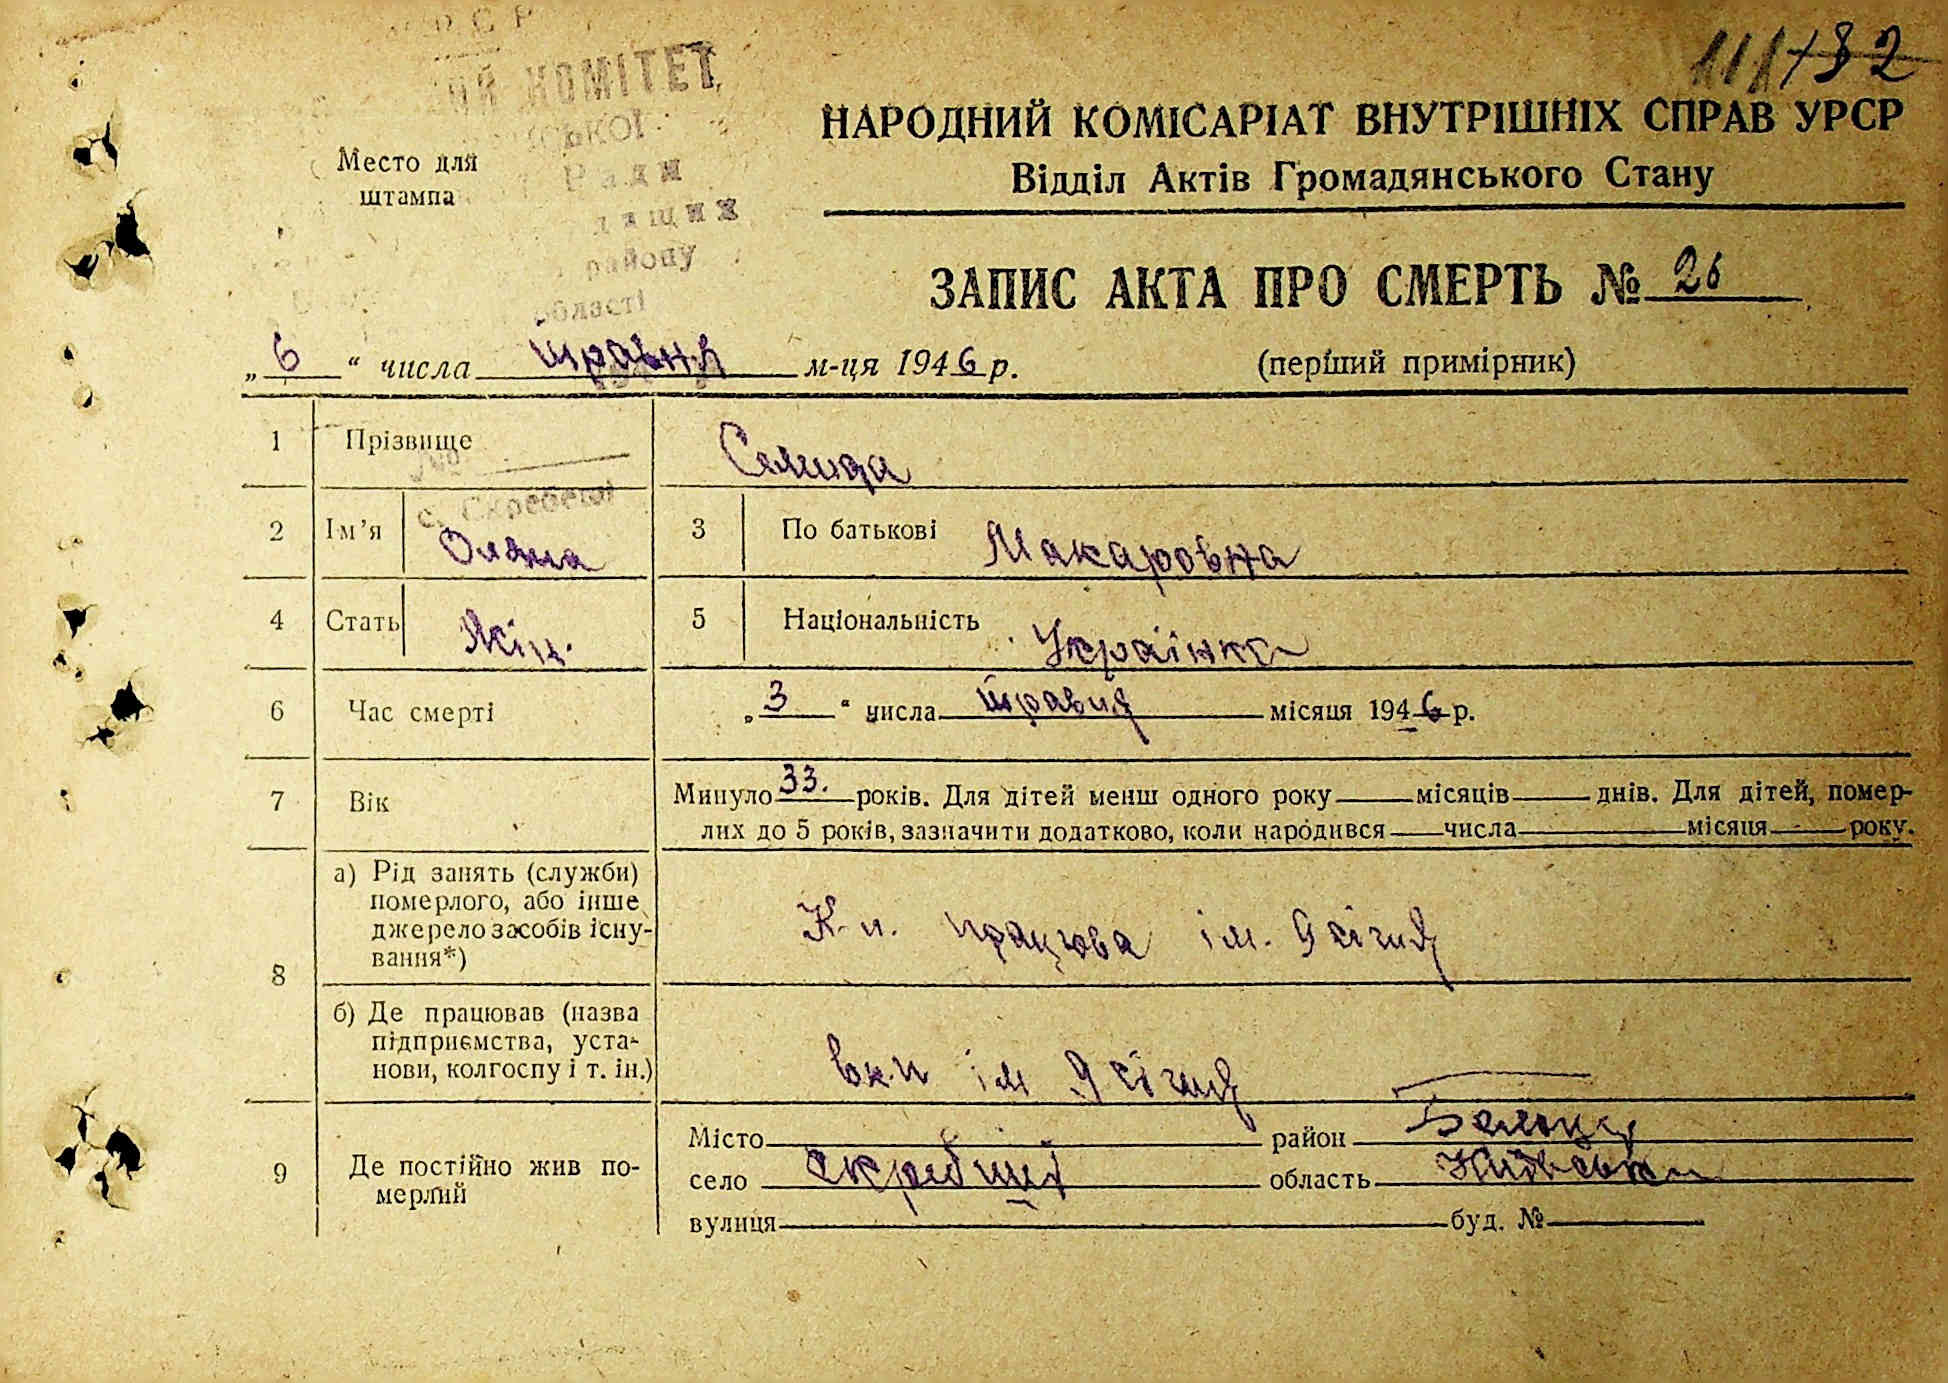 111/32
КОМІТЕТ
Ради
району
області
Место для
штампа
НАРОДНИЙ КОМІСАРІАТ ВНУТРІШНІХ СПРАВ УРСР
Відділ Актів Громадянського Стану
ЗАПИС АКТА ПРО СМЕРТЬ № 26
„ 6 “ числа травня м-ця 1946 р. (перший примірник)
1 Прізвище
2 Ім'я Оляна 3 По батькові Макаровна
4 Стать Жін. 5 Національність Українка
6 Час смерті „ 3 “ числа травня місяця 1946 р.
7 Вік Минуло 33. років. Для дітей менш одного року місяців днів. Для дітей, помер-
лих до 5 років, зазначити додатково, коли народився числа місяця року.
8 а) Рід занять (служби)
померлого, або інше
джерело засобів існу-
вання*)
К-п. працюва ім. 9 січня
б) Де працював (назва
підприємства, уста-
нови, колгоспу і т. ін.)
ім 9 січня
9 Де постійно жив по-
мерлий
Місто район
село область Київська
вулиця буд. №